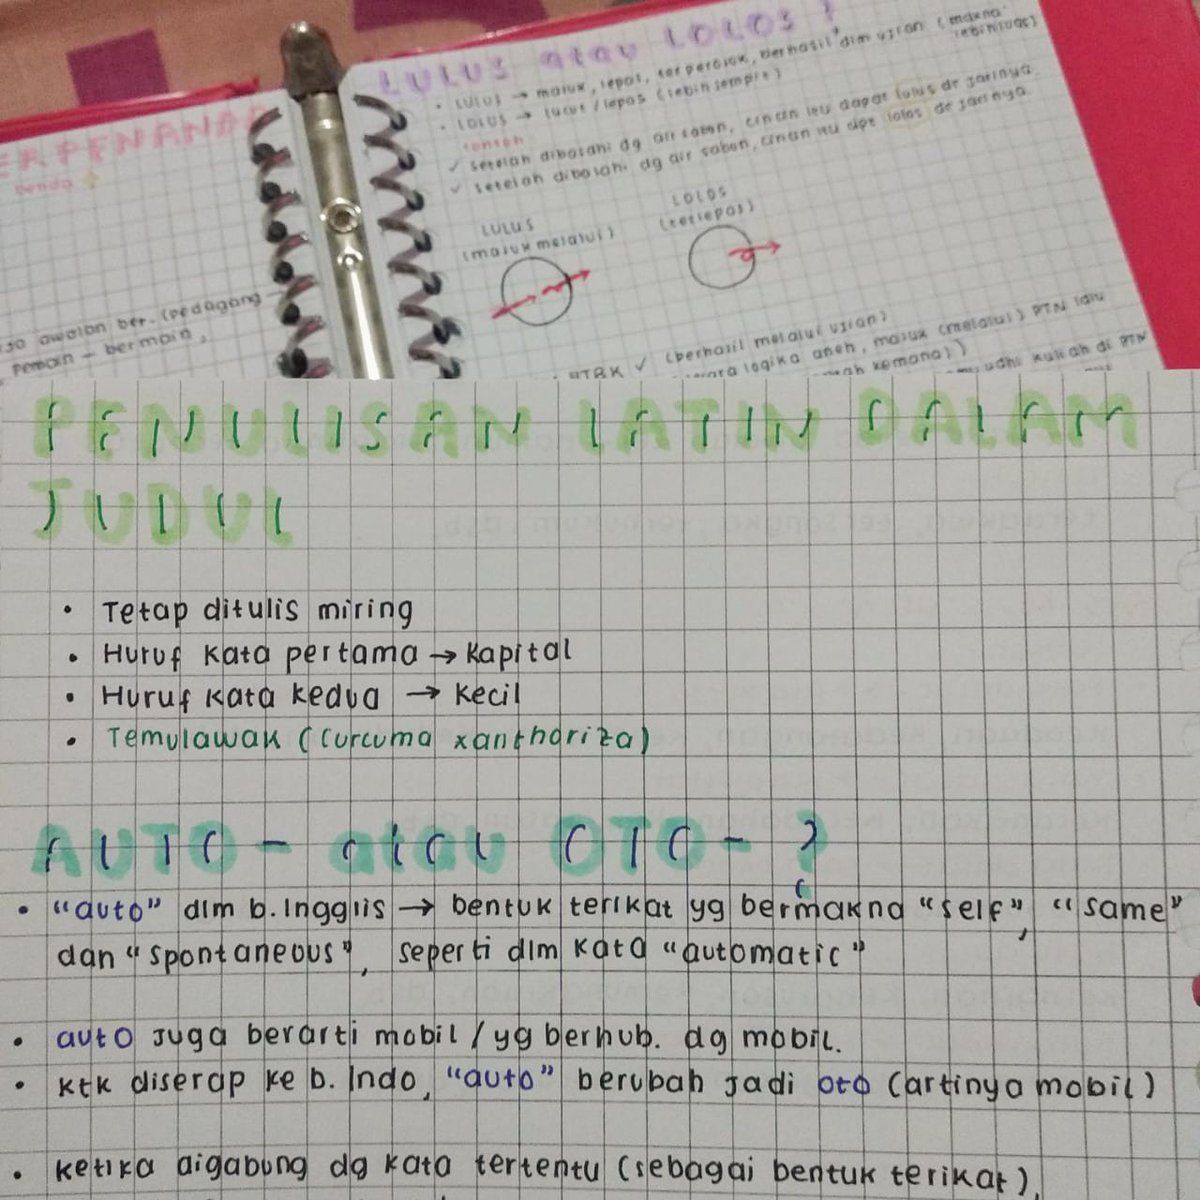 LULUS atau LOLOS ?
• LULUS → masuk, lepas, terperosok, berhasil dlm ujian (makna lebih luas)
• LOLOS → lucut / lepas (lebih sempit)
contoh
✓ setelah dibasahi dg air sabun, cincin itu dapat lulus dr jarinya
✓ setelah dibasahi dg air sabun, cincin itu dpt lolos dr jarinya
LULUS
(masuk melalui)
LOLOS
(terlepas)
benda
awalan ber- (pedagang
pemain - bermain,
UTBK ✓ (berhasil melalui ujian)
logika aneh, masuk (melalui) PTN lalu
kemana)) kuliah di PTN
PENULISAN LATIN DALAM
JUDUL
• Tetap ditulis miring
• Huruf kata pertama → kapital
• Huruf kata kedua → kecil
• Temulawak (Curcuma xanthoriza)
AUTO- atau OTO- ?
• "auto" dlm b. Inggris → bentuk terikat yg bermakna "self", "same"
dan "spontaneous", seperti dlm kata "automatic"
• auto juga berarti mobil / yg berhub. dg mobil.
• ktk diserap ke b. Indo, "auto" berubah jadi oto (artinya mobil)
• ketika digabung dg kata tertentu (sebagai bentuk terikat),